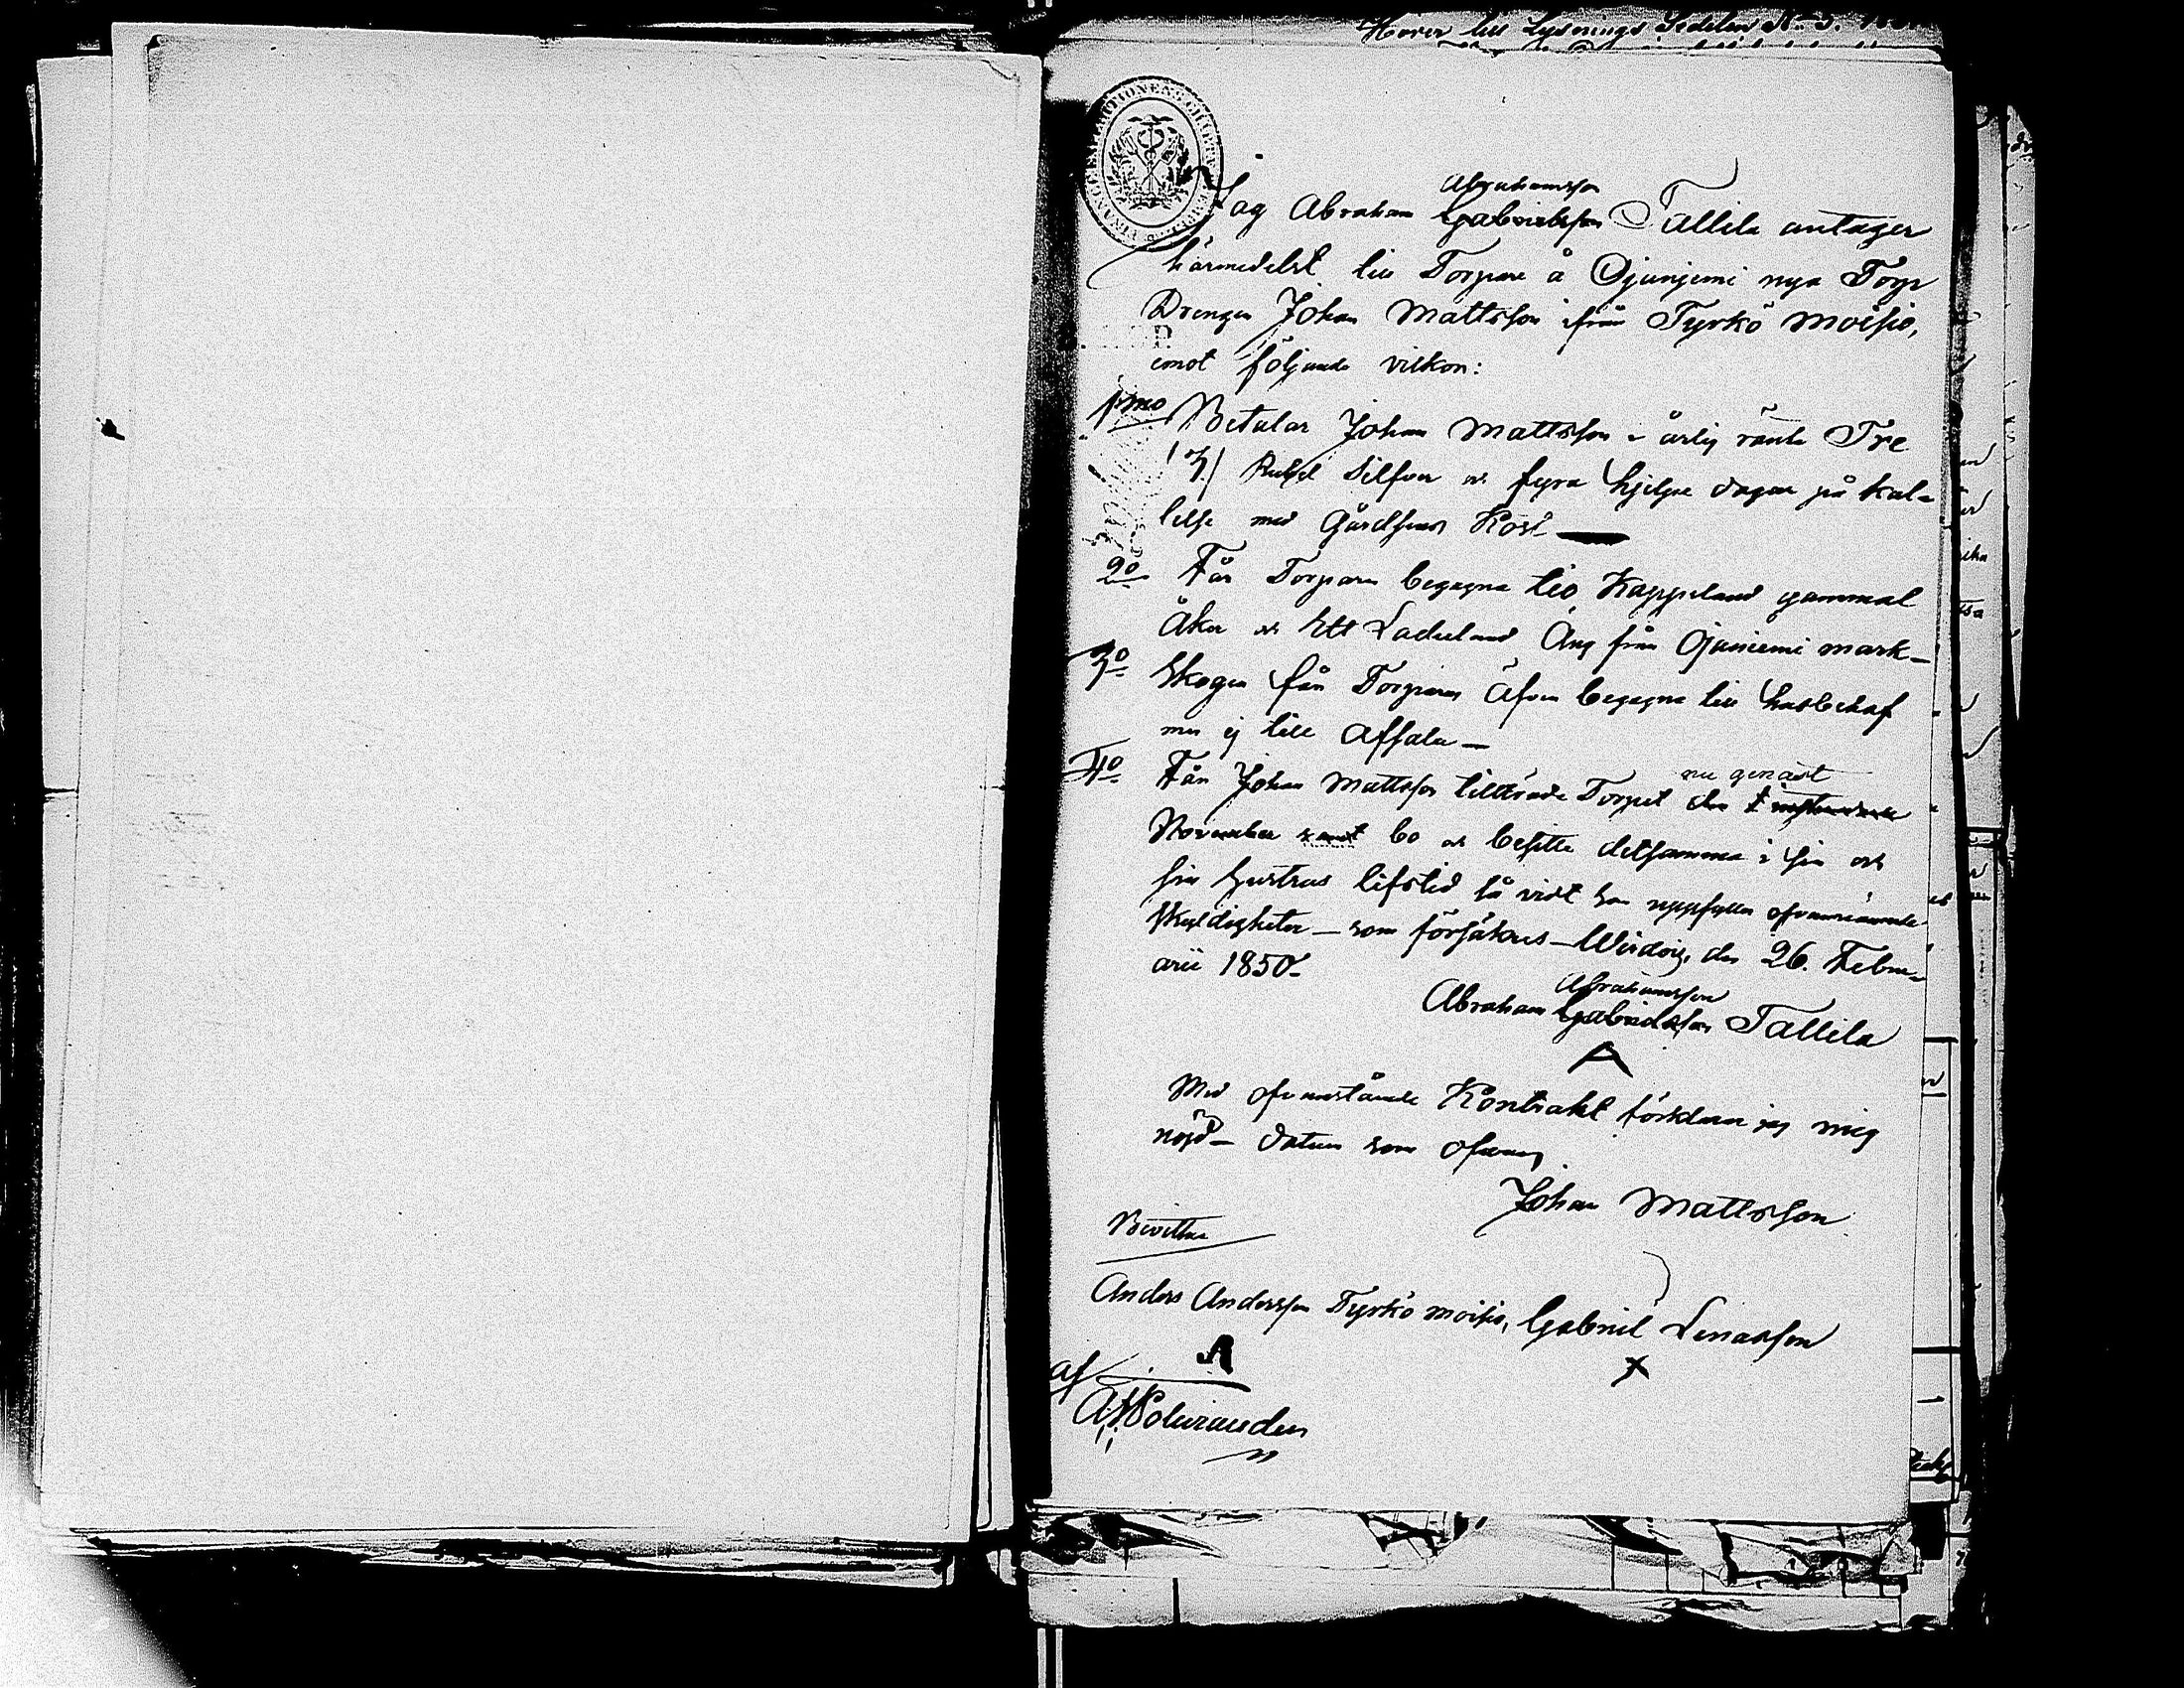 Hörer till Lysnings Sedelen No 5.
Abrahamsson
Jag Abraham Gabrielsson Tallila antager
härmedelst till Torpare å Ojanjemi nya Torp
Drengen Johan Mattsson ifrån Tyrkö moisio,
emot följande vilkor:
1:mo Betalar Johan Mattsson i årlig ränta Tre
(3) Rubel Silfver och fyra hjelpe dagar på kal-
lelse med Gårdsens Kost
2o Får Torparen begagna tio Kappeland gammal
åker och Ett Ladeland Äng från Ojaniemi mark-
3o Skogen får Torparen äfven begagna till husbehof
men ej till Afsalu-
nu genast
4o Får Johan Mattsson tillträda Torpet den 1
November samt bo och besitta detsamma i sin och
sin hustrus lifstid så vidt han uppfyller ofvannämnde
skyldigheter - som försäkras - Wirdois, den 26. Febru-
arii 1850-
Abrahamsson
Abraham Gabrielsson Tallila
A
Med ofvanstående Kontrakt förklarar jag mig
nöjd - datum som ofvan
Johan Mattsson
Bevittna
Anders Andersson Tyrkö moisio, Gabriel Linasson
A x
af